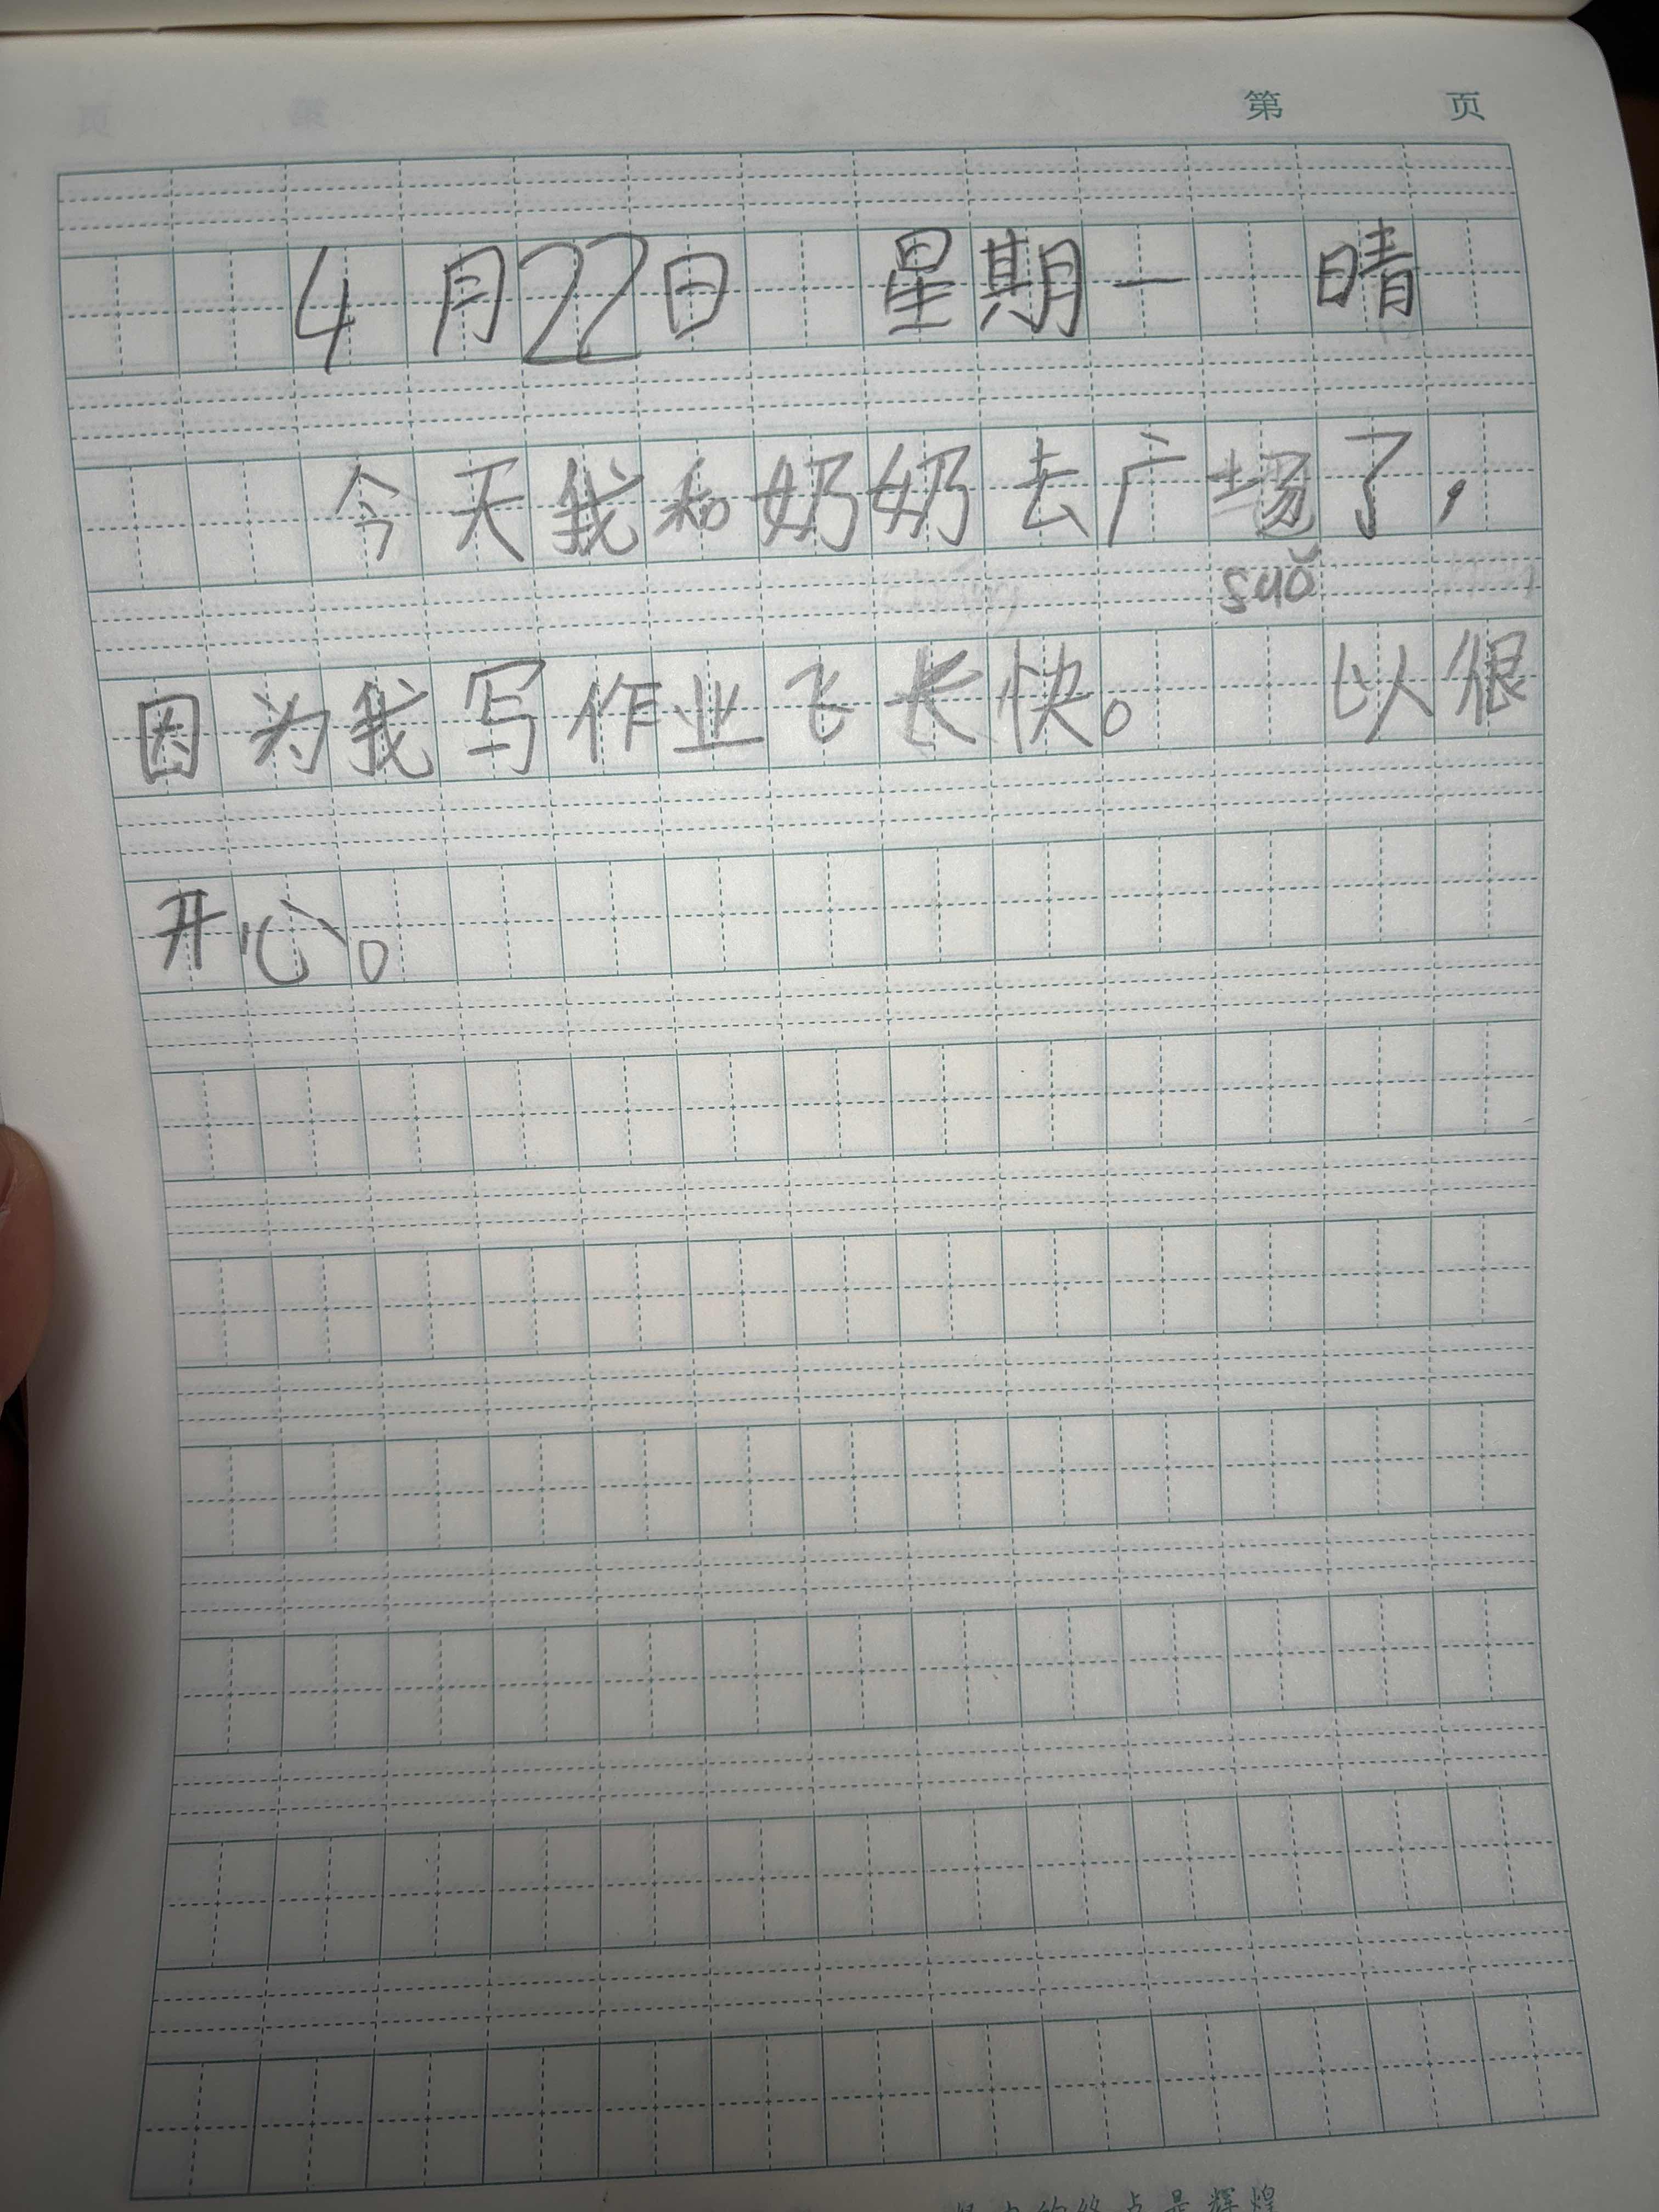 第 页
4月22日 星期一 晴
今天我和奶奶去广场了，
suǒ
因为我写作业飞长快。 以很
开心。